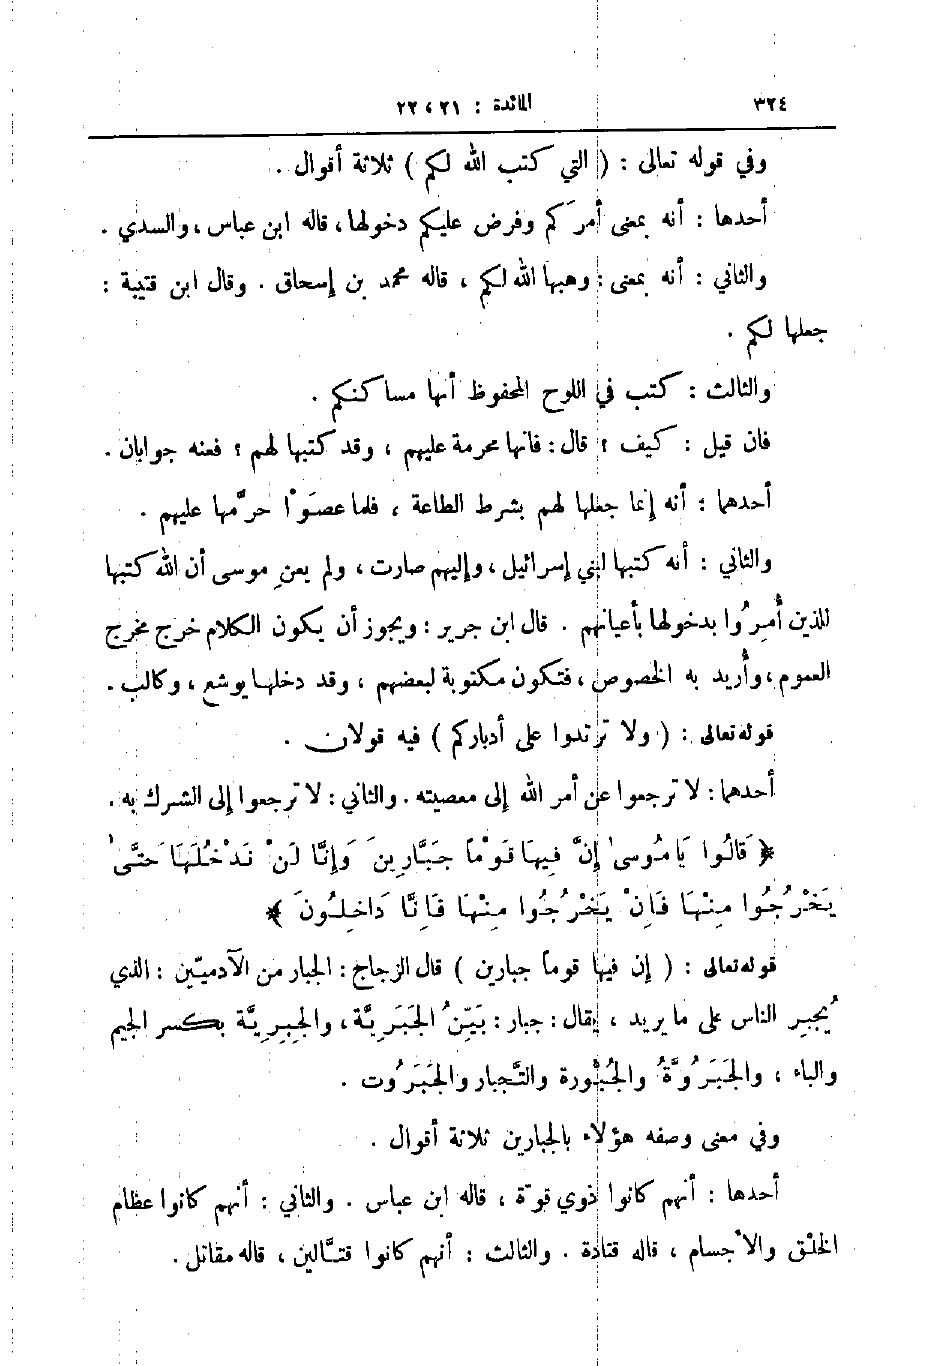 ٣٢٤ المائدة : ٢١ ، ٢٢
وفي قوله تعالى : ( التي كتب الله لكم ) ثلاثة أقوال .
أحدها : أنه بمعنى أمرَكم وفرض عليكم دخولها ، قاله ابن عباس ، والسدي .
والثاني : أنه بمعنى : وهبها الله لكم ، قاله محمد بن إسحاق . وقال ابن قتيبة :
جعلها لكم .
والثالث : كتب في اللوح المحفوظ أنها مساكنكم .
فان قيل : كيف ؟ قال : فانها محرمة عليهم ، وقد كتبها لهم ؟ فعنه جوابان .
أحدهما : أنه إنما جعلها لهم بشرط الطاعة ، فلما عصَوْا حرَّمها عليهم .
والثاني : أنه كتبها لبني إسرائيل ، وإليهم صارت ، ولم يعنِ موسى أن الله كتبها
للذين أُمِرُوا بدخولها بأعيانهم . قال ابن جرير : ويجوز أن يكون الكلام خرج مخرج
العموم ، وأُريد به الخصوص ، فتكون مكتوبة لبعضهم ، وقد دخلها يوشع ، وكالب .
قوله تعالى : ( ولا ترتدوا على أدباركم ) فيه قولان .
أحدهما : لا ترجعوا عن أمر الله إلى معصيته . والثاني : لا ترجعوا إلى الشرك به .
﴿ قَالُوا يَا مُوسىٰ إِنَّ فِيهَا قَوْماً جَبَّارِينَ وَإِنَّا لَنْ نَدْخُلَهَا حَتَّىٰ
يَخْرُجُوا مِنْهَا فَإِنْ يَخْرُجُوا مِنْهَا فَإِنَّا دَاخِلُونَ ﴾
قوله تعالى : ( إن فيها قوماً جبارين ) قال الزجاج : الجبار من الآدميّين : الذي
يُجبِر الناس على ما يريد ، يقال : جبار : بَيِّنُ الجَبَرِيَّة ، والجِبِرِيَّة بكسر الجيم
والباء ، والجَبَرُوَّةُ والجُبُّورة والتَّجبار والجَبَرُوت .
وفي معنى وصفه هؤلاء بالجبارين ثلاثة أقوال .
أحدها : أنهم كانوا ذوي قوّة ، قاله ابن عباس . والثاني : أنهم كانوا عظام
الخلْق والأجسام ، قاله قتادة . والثالث : أنهم كانوا قتَّالين ، قاله مقاتل .